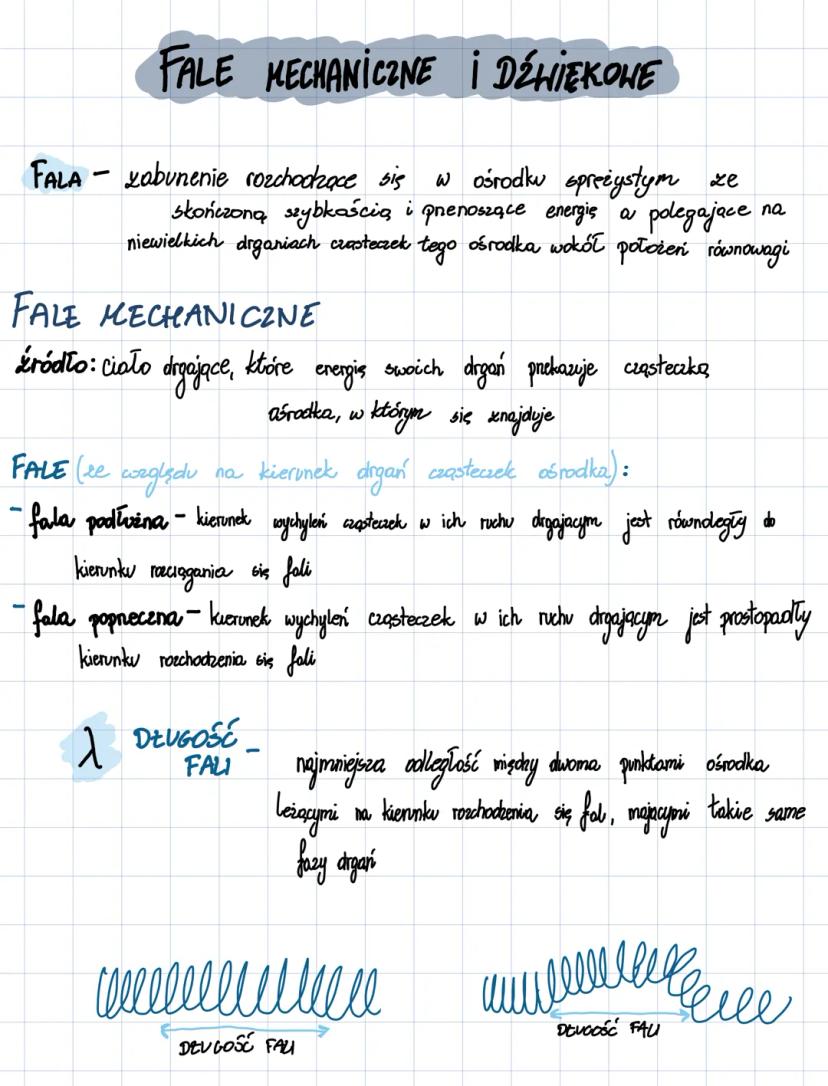 FALE MECHANICZNE i DŹWIĘKOWE
FALA - zaburzenie rozchodzące się w ośrodku sprężystym ze
skończoną szybkością i przenoszące energię a polegające na
niewielkich drganiach cząsteczek tego ośrodka wokół położeń równowagi
FALE MECHANICZNE
źródło: ciało drgające, które energię swoich drgań przekazuje cząsteczką
ośrodka, w którym się znajduje
FALE (ze względu na kierunek drgań cząsteczek ośrodka):
- fala podłużna - kierunek wychyleń cząsteczek w ich ruchu drgającym jest równoległy do
kierunku rozciągania się fali
- fala poprzeczna - kierunek wychyleń cząsteczek w ich ruchu drgającym jest prostopadły
kierunku rozchodzenia się fali
λ DŁUGOŚĆ -
FALI
najmniejsza odległość między dwoma punktami ośrodka
leżącymi na kierunku rozchodzenia się fal, mającymi takie same
fazy drgań
DŁUGOŚĆ FALI
DŁUGOŚĆ FALI